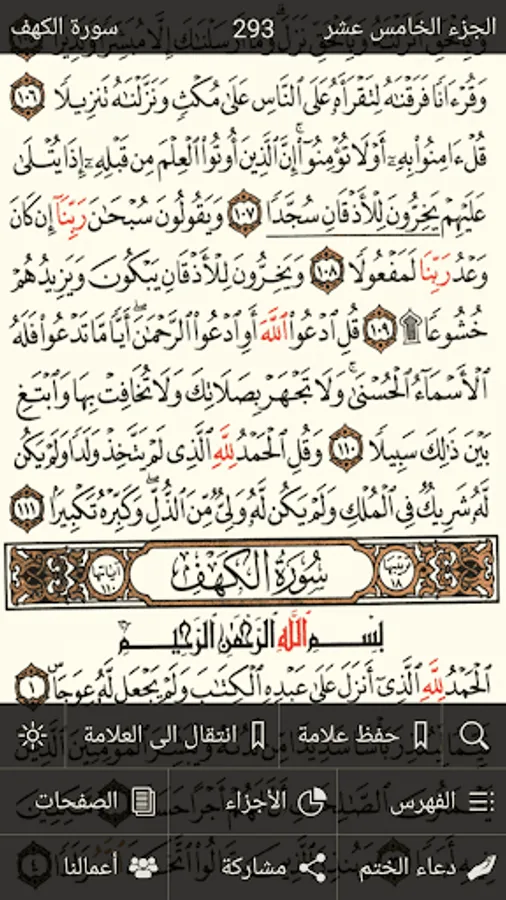 الجزء الخامس عشر 293 سورة الكهف
وَقُرْءَانًا فَرَقْنَٰهُ لِتَقْرَأَهُۥ عَلَى ٱلنَّاسِ عَلَىٰ مُكْثٍ وَنَزَّلْنَٰهُ تَنزِيلًا ١٠٦
قُلْ ءَامِنُوا۟ بِهِۦٓ أَوْ لَا تُؤْمِنُوٓا۟ ۚ إِنَّ ٱلَّذِينَ أُوتُوا۟ ٱلْعِلْمَ مِن قَبْلِهِۦٓ إِذَا يُتْلَىٰ
عَلَيْهِمْ يَخِرُّونَ لِلْأَذْقَانِ سُجَّدًا ١٠٧ وَيَقُولُونَ سُبْحَٰنَ رَبِّنَآ إِن كَانَ
وَعْدُ رَبِّنَا لَمَفْعُولًا ١٠٨ وَيَخِرُّونَ لِلْأَذْقَانِ يَبْكُونَ وَيَزِيدُهُمْ
خُشُوعًا ۩ ١٠٩ قُلِ ٱدْعُوا۟ ٱللَّهَ أَوِ ٱدْعُوا۟ ٱلرَّحْمَٰنَ ۖ أَيًّا مَّا تَدْعُوا۟ فَلَهُ
ٱلْأَسْمَآءُ ٱلْحُسْنَىٰ ۚ وَلَا تَجْهَرْ بِصَلَاتِكَ وَلَا تُخَافِتْ بِهَا وَٱبْتَغِ
بَيْنَ ذَٰلِكَ سَبِيلًا ١١٠ وَقُلِ ٱلْحَمْدُ لِلَّهِ ٱلَّذِى لَمْ يَتَّخِذْ وَلَدًا وَلَمْ يَكُن
لَّهُۥ شَرِيكٌ فِى ٱلْمُلْكِ وَلَمْ يَكُن لَّهُۥ وَلِىٌّ مِّنَ ٱلذُّلِّ ۖ وَكَبِّرْهُ تَكْبِيرًۢا ١١١
ترتيبها ١٨ سُورَةُ الكَهْف آياتها ١١٠
بِسْمِ ٱللَّهِ ٱلرَّحْمَٰنِ ٱلرَّحِيمِ
ٱلْحَمْدُ لِلَّهِ ٱلَّذِىٓ أَنزَلَ عَلَىٰ عَبْدِهِ ٱلْكِتَٰبَ وَلَمْ يَجْعَل لَّهُۥ عِوَجَا ۜ ١
حفظ علامة انتقال الى العلامة
الفهرس الأجزاء الصفحات
دعاء الختم مشاركة أعمالنا